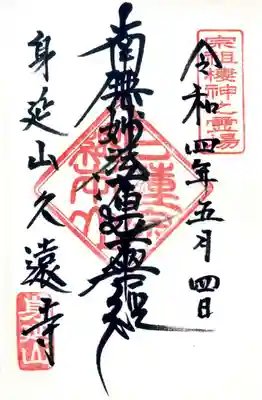 宗祖棲神之霊場
令和四年五月四日
南無妙法蓮華経
身延山久遠寺